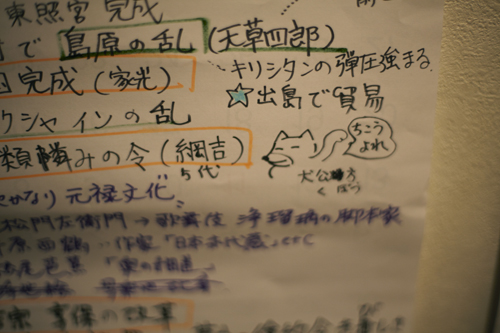 東照宮 完成
で 島原の乱 (天草四郎)
キリシタンの弾圧強まる
完成 (家光)
☆出島で貿易
クシャインの乱
類憐みの令 (綱吉)
5代
ちこう
よれ
犬公方
くぼう
かなり 元禄文化
松門左衛門 → 歌舞伎 浄瑠璃の脚本家
原西鶴 ‥作家「日本永代蔵」etc
尾芭蕉
享保の改革